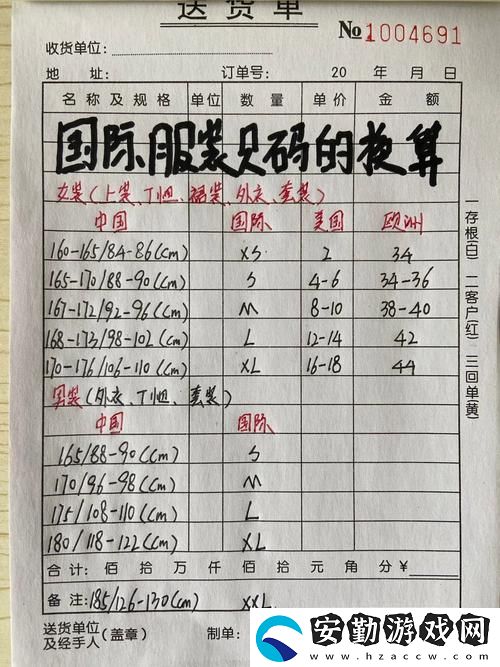 送货单
№1004691
收货单位:
地 址: 订单号: 20 年 月 日
名称及规格 单位 数量 单价 金额
国际服装尺码的换算
女装(上装、T恤、裙装、外衣、套装)
中国 国际 美国 欧洲
160-165/84-86(cm) XS 2 34
165-170/88-90(cm) S 4-6 34-36
167-172/92-96(cm) M 8-10 38-40
168-173/98-102(cm) L 12-14 42
170-176/106-110(cm) XL 16-18 44
男装(外衣、T恤、套装)
中国 国际
165/88-90(cm) S
170/96-98(cm) M
175/108-110(cm) L
180/118-122(cm) XL
合计: 佰 拾 万 仟 佰 拾 元 角 分¥
备注: 185/126-130(cm) XXL
送货单位及经手人(盖章) 制单:
一存根(白) 二客户(红) 三回单(黄)
安勤游戏网
www.hzaccw.com